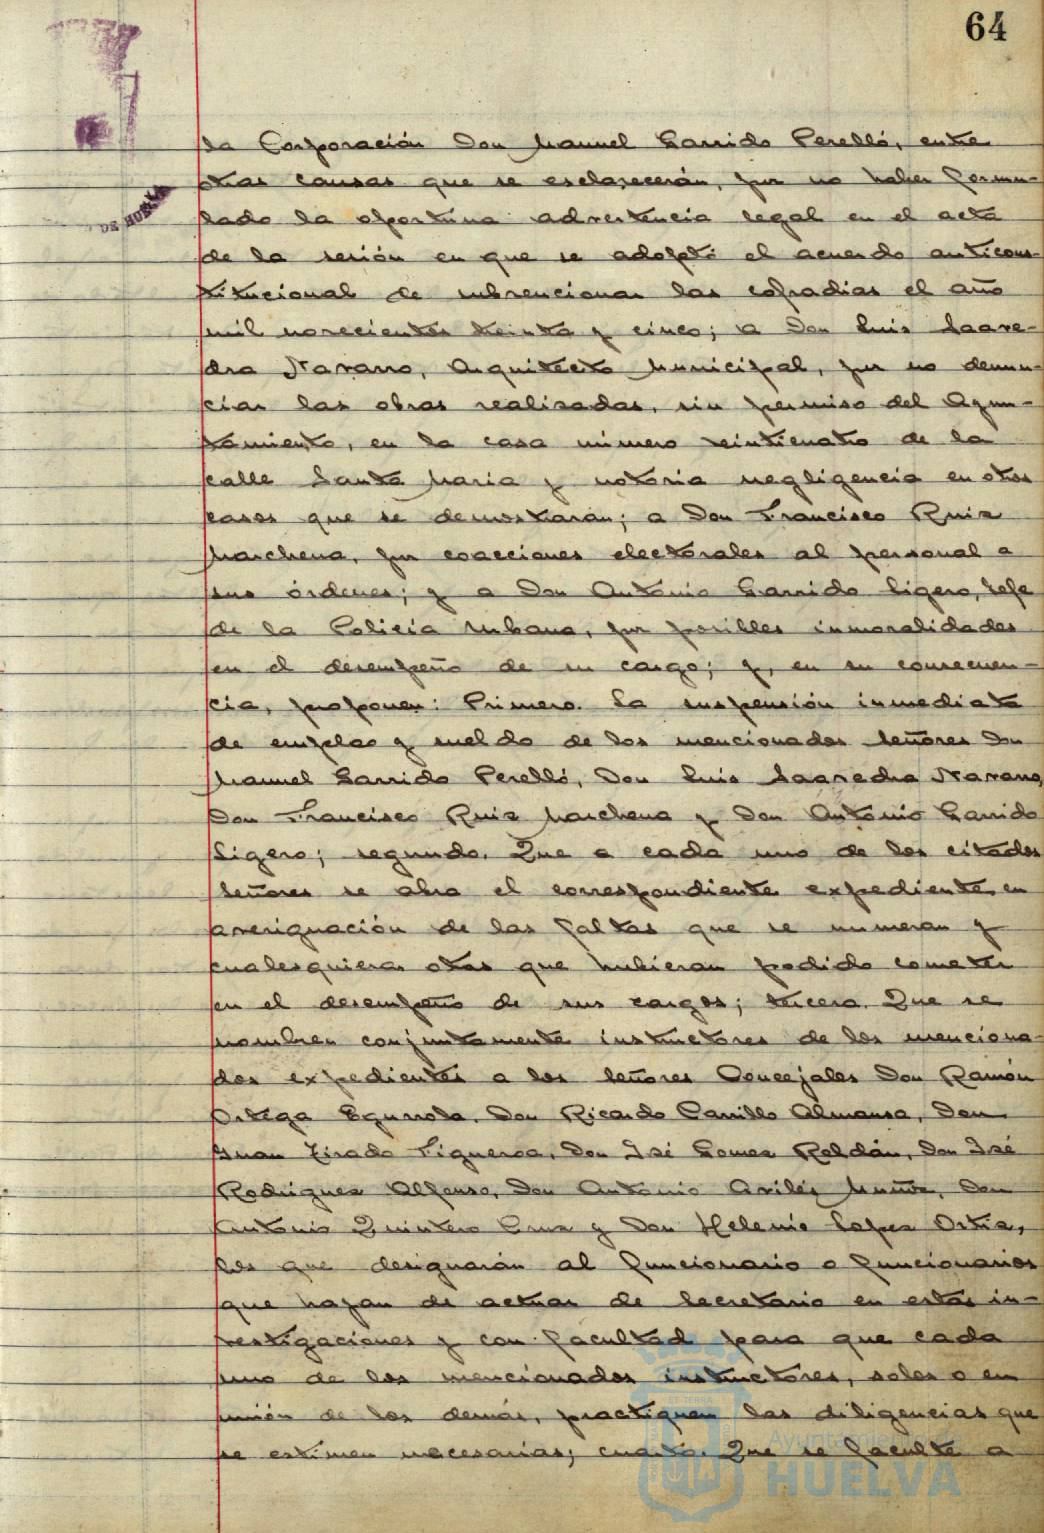 64
la Corporación Don Manuel Garrido Perelló, entre
otras causas que se esclarecerán, por no haber formu-
lado la oportuna advertencia legal en el acta
de la sesión en que se adoptó el acuerdo anticons-
titucional de subvencionar las cofradias el año
mil novecientos treinta y cinco; a Don Luis Saave-
dra Navarro, Arquitecto Municipal, por no denun-
ciar las obras realizadas, sin permiso del Ayun-
tamiento, en la casa número veinticuatro de la
calle Santa Maria y notoria negligencia en otros
casos que se demostrarán; a Don Francisco Ruiz
Marchena, por coacciones electorales al personal a
sus órdenes; y a Don Antonio Garrido Ligero, Jefe
de la Policía Urbana, por posibles inmoralidades
en el desempeño de su cargo; y, en su consecuen-
cia, proponen: Primero. La suspensión inmediata
de empleo y sueldo de los mencionados señores Don
Manuel Garrido Perelló, Don Luis Saavedra Navarro,
Don Francisco Ruiz Marchena y Don Antonio Garrido
Ligero; segundo. Que a cada uno de los citados
señores se abra el correspondiente expediente en
averiguación de las faltas que se numeran y
cualesquiera otras que hubieran podido cometer
en el desempeño de sus cargos; tercero. Que se
nombren conjuntamente instructores de los menciona-
dos expedientes a los señores Concejales Don Ramón
Ortega Don Ricardo Carrillo Almansa, Don
Juan Tirado Figueroa, Don José Gomez Roldán, Don José
Rodriguez Alfonso, Don Antonio Avilés Muñoz, Don
Antonio Quintero Cruz y Don Helenio Lopez Ortiz,
los que designarán al funcionario o funcionarios
que hayan de actuar de Secretario en estas in-
vestigaciones y con facultad para que cada
uno de los mencionados instructores, solos o en
unión de los demás, practiquen las diligencias que
se estimen necesarias; cuarto. Que se faculte a
DE HUELVA
Ayuntamiento de
HUELVA